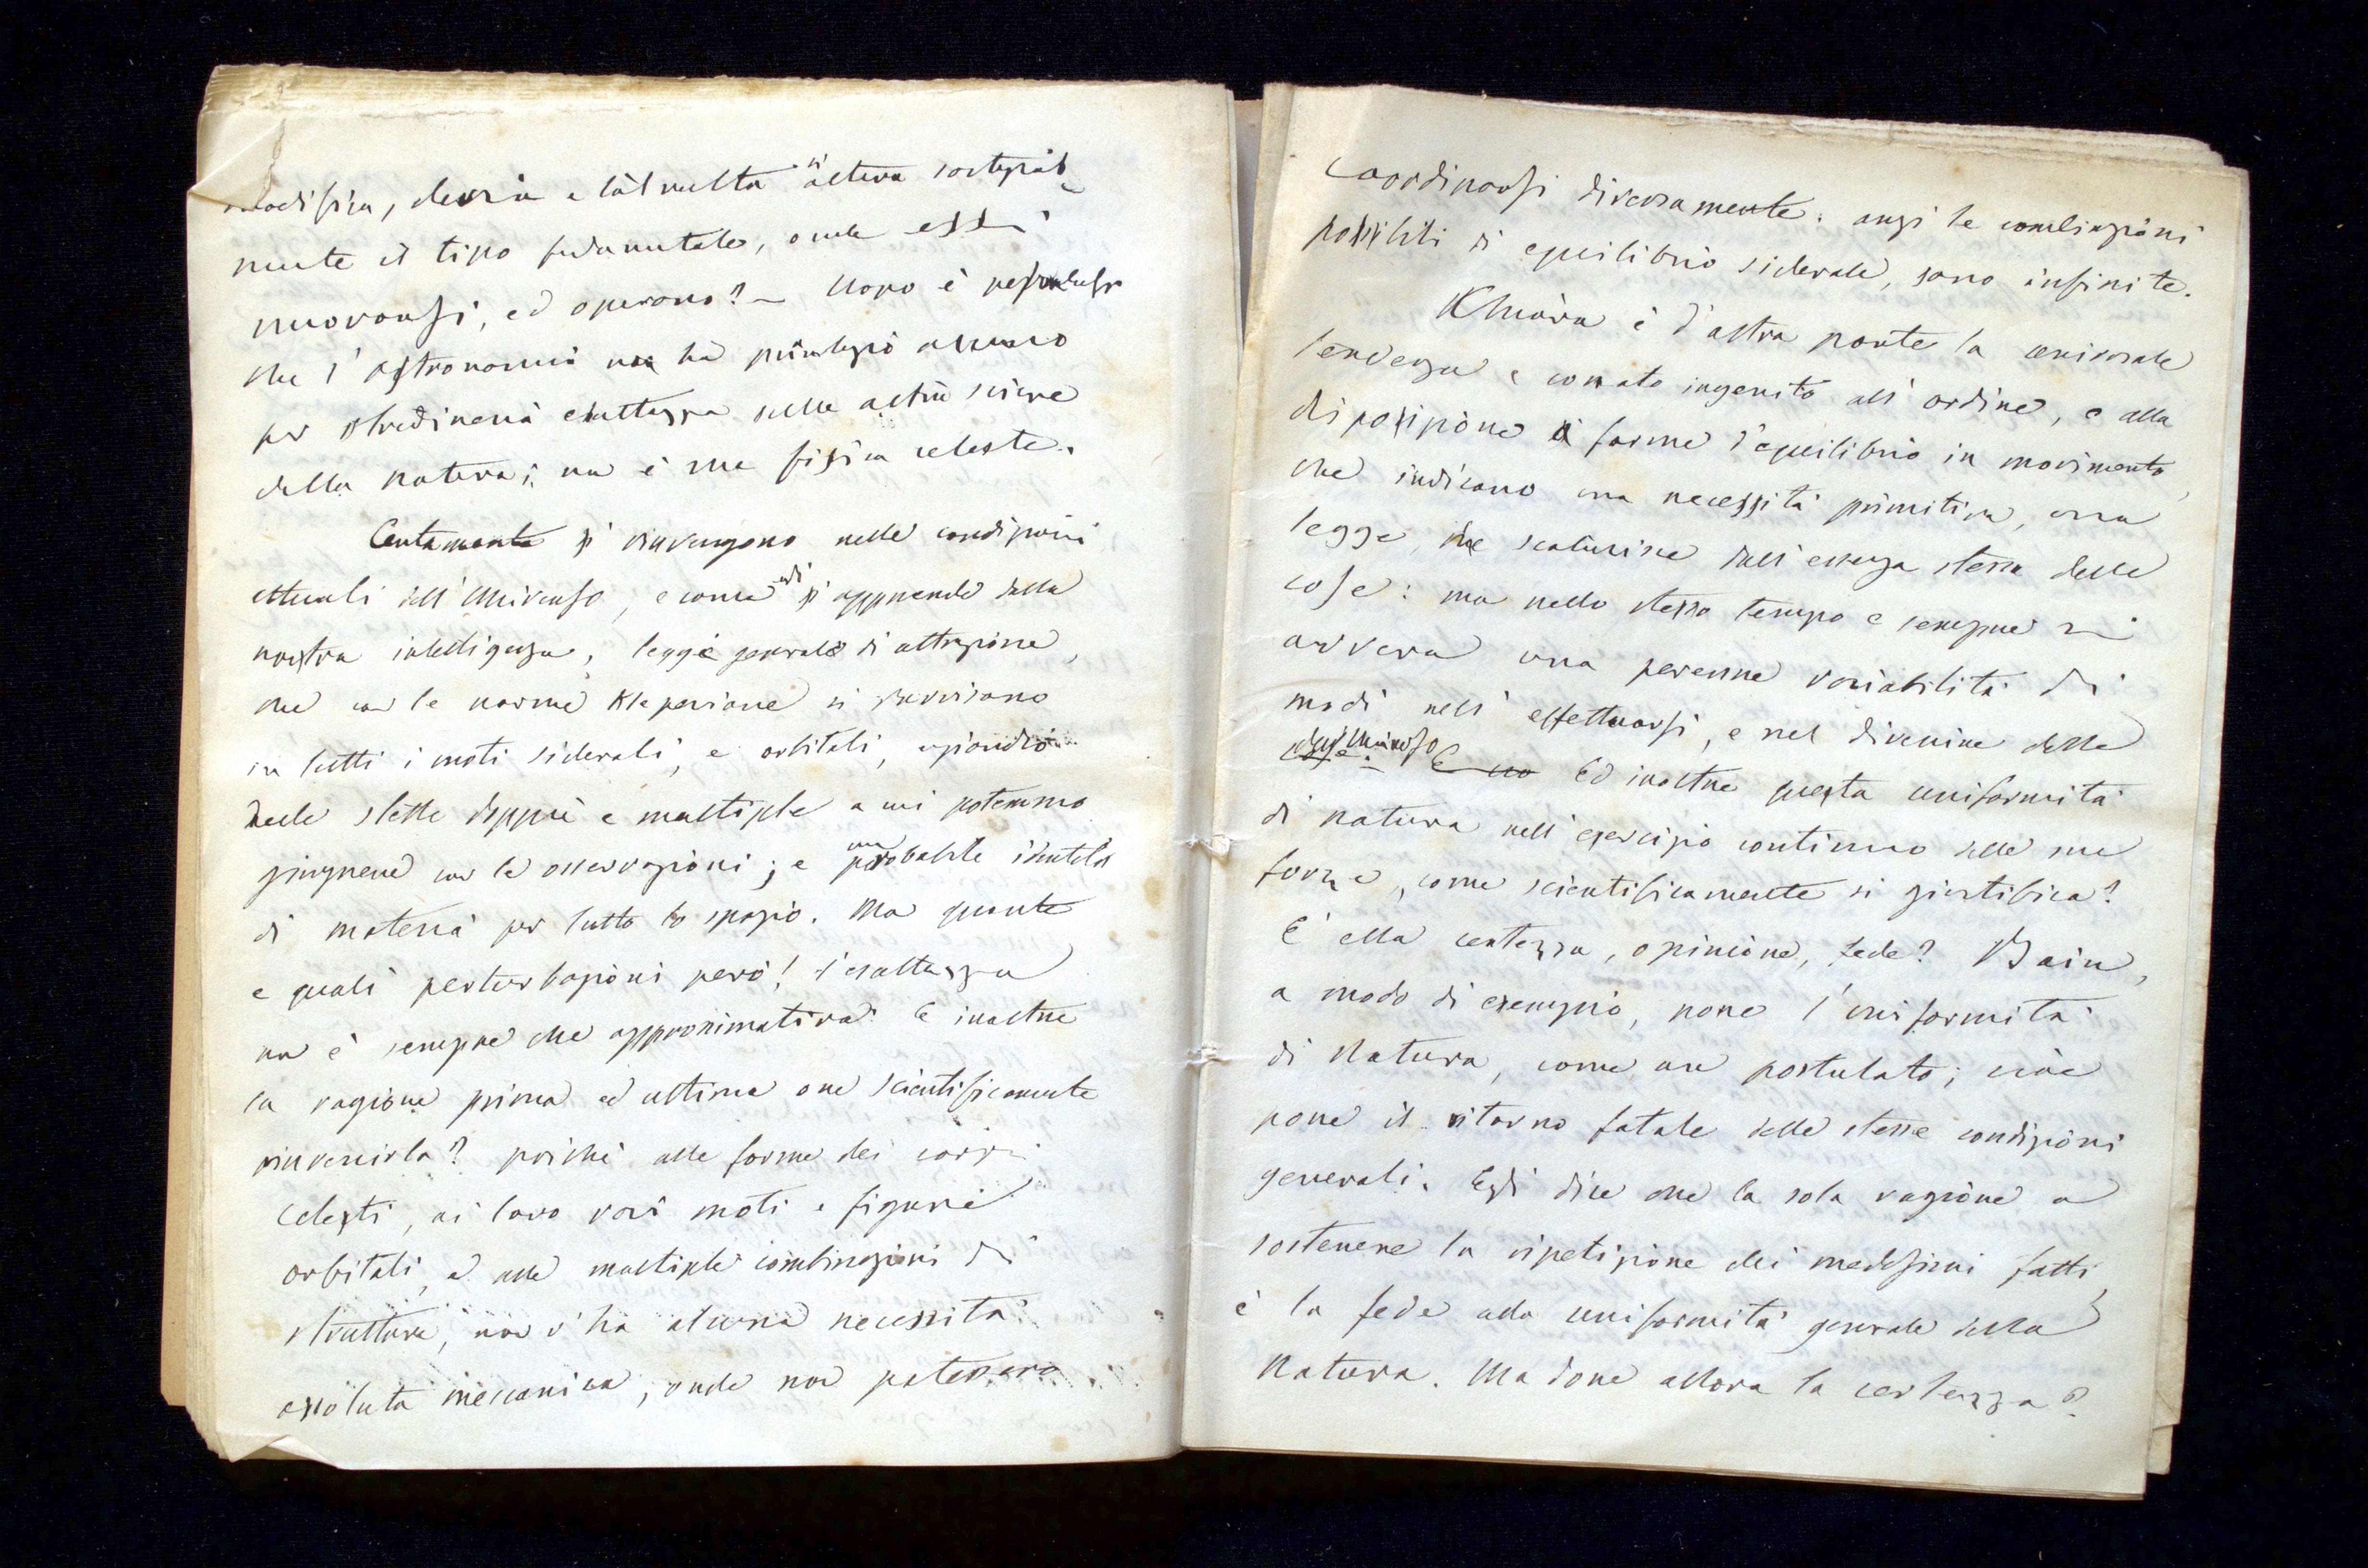 modifica, devia e talvolta si altera sostanzial-
mente il tipo fondamentale, onde essi
muovonsi, ed operano? — Uopo è persuadersi
che l'astronomia non ha privilegio alcuno
per straordinaria esattezza sulle altre scienze
della natura; non è che fisica celeste.
Certamente si rinvengono nelle condizioni
attuali dell'Universo, e come odi si apprende dalla
nostra intelligenza, legge generale di attrazione,
che con le norme Kleperiane si ravvisano
in tutti i moti siderali, e orbitali,
delle stelle doppie e multiple a cui potemmo
giugnere con le osservazioni; e una probabile identità
di materia per tutto lo spazio. Ma quante
e quali perturbazioni però! l'esattezza
non è sempre che approssimativa. E inoltre
la ragione prima ed ultima one scientificamente
rinvenirla? poichè alle forme dei corpi
celesti, ai loro varî moti e figure
orbitali, ed alle multiple combinazioni di
strutture, non v'ha alcuna necessità
assoluta meccanica, onde non potessero
coordinarsi diversamente: anzi le combinazioni
possibili di equilibrio siderale, sono infinite.
è d'altra parte la universale
tendenza e conato ingenito all'ordine, e alla
disposizione di forme d'equilibrio in movimento,
che indicano una necessità primitiva, una
legge, che scaturisce dall'essenza stessa delle
cose: ma nello stesso tempo e sempre si
avvera una perenne variabilità di
modi nell'effettuarsi, e nel divenire delle
cose. dell'Universo E no Ed inoltre questa uniformità
di natura nell'esercizio continuo delle sue
forze, come scientificamente si giustifica?
È ella certezza, opinione, fede? Bain,
a modo di esempio, pone l'uniformità
di Natura, come un postulato; cioè
pone il ritorno fatale delle stesse condizioni
generali. Egli dice che la sola ragione a
sostenere la ripetizione dei medesimi fatti,
è la fede alla uniformità generale della
Natura. Ma dove allora la certezza?